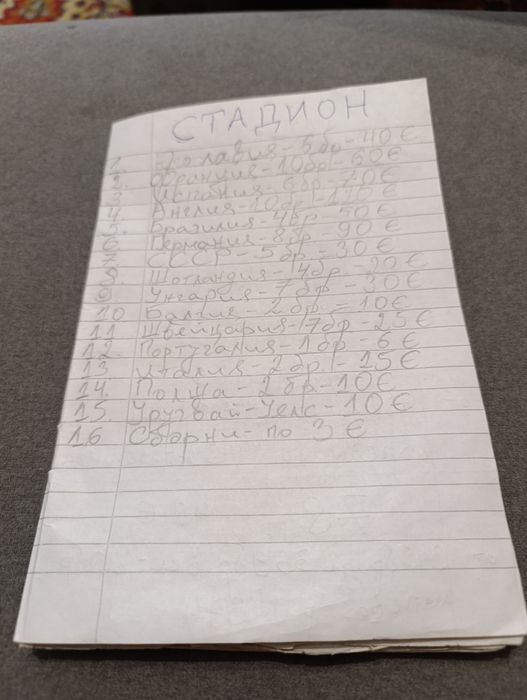 СТАДИОН
1. Югославия - 6 бр - 40 €
2. Франция - 10 бр - 60 €
3. Испания - 6 бр - 70 €
4. Англия - 10 бр - 120 €
5. Бразилия - 4 бр - 50 €
6. Германия - 8 бр - 90 €
7 СССР - 5 бр - 30 €
8. Шотландия - 4 бр - 20 €
9 Унгария - 7 бр - 30 €
10 Балгия - 2 бр - 10 €
11 Швейцария - 7 бр - 25 €
12. Португалия - 1 бр - 6 €
13 Италия - 2 бр - 15 €
14. Полша - 2 бр - 10 €
15. Уругвай - Уелс - 10 €
16 Сборни - по 3 €